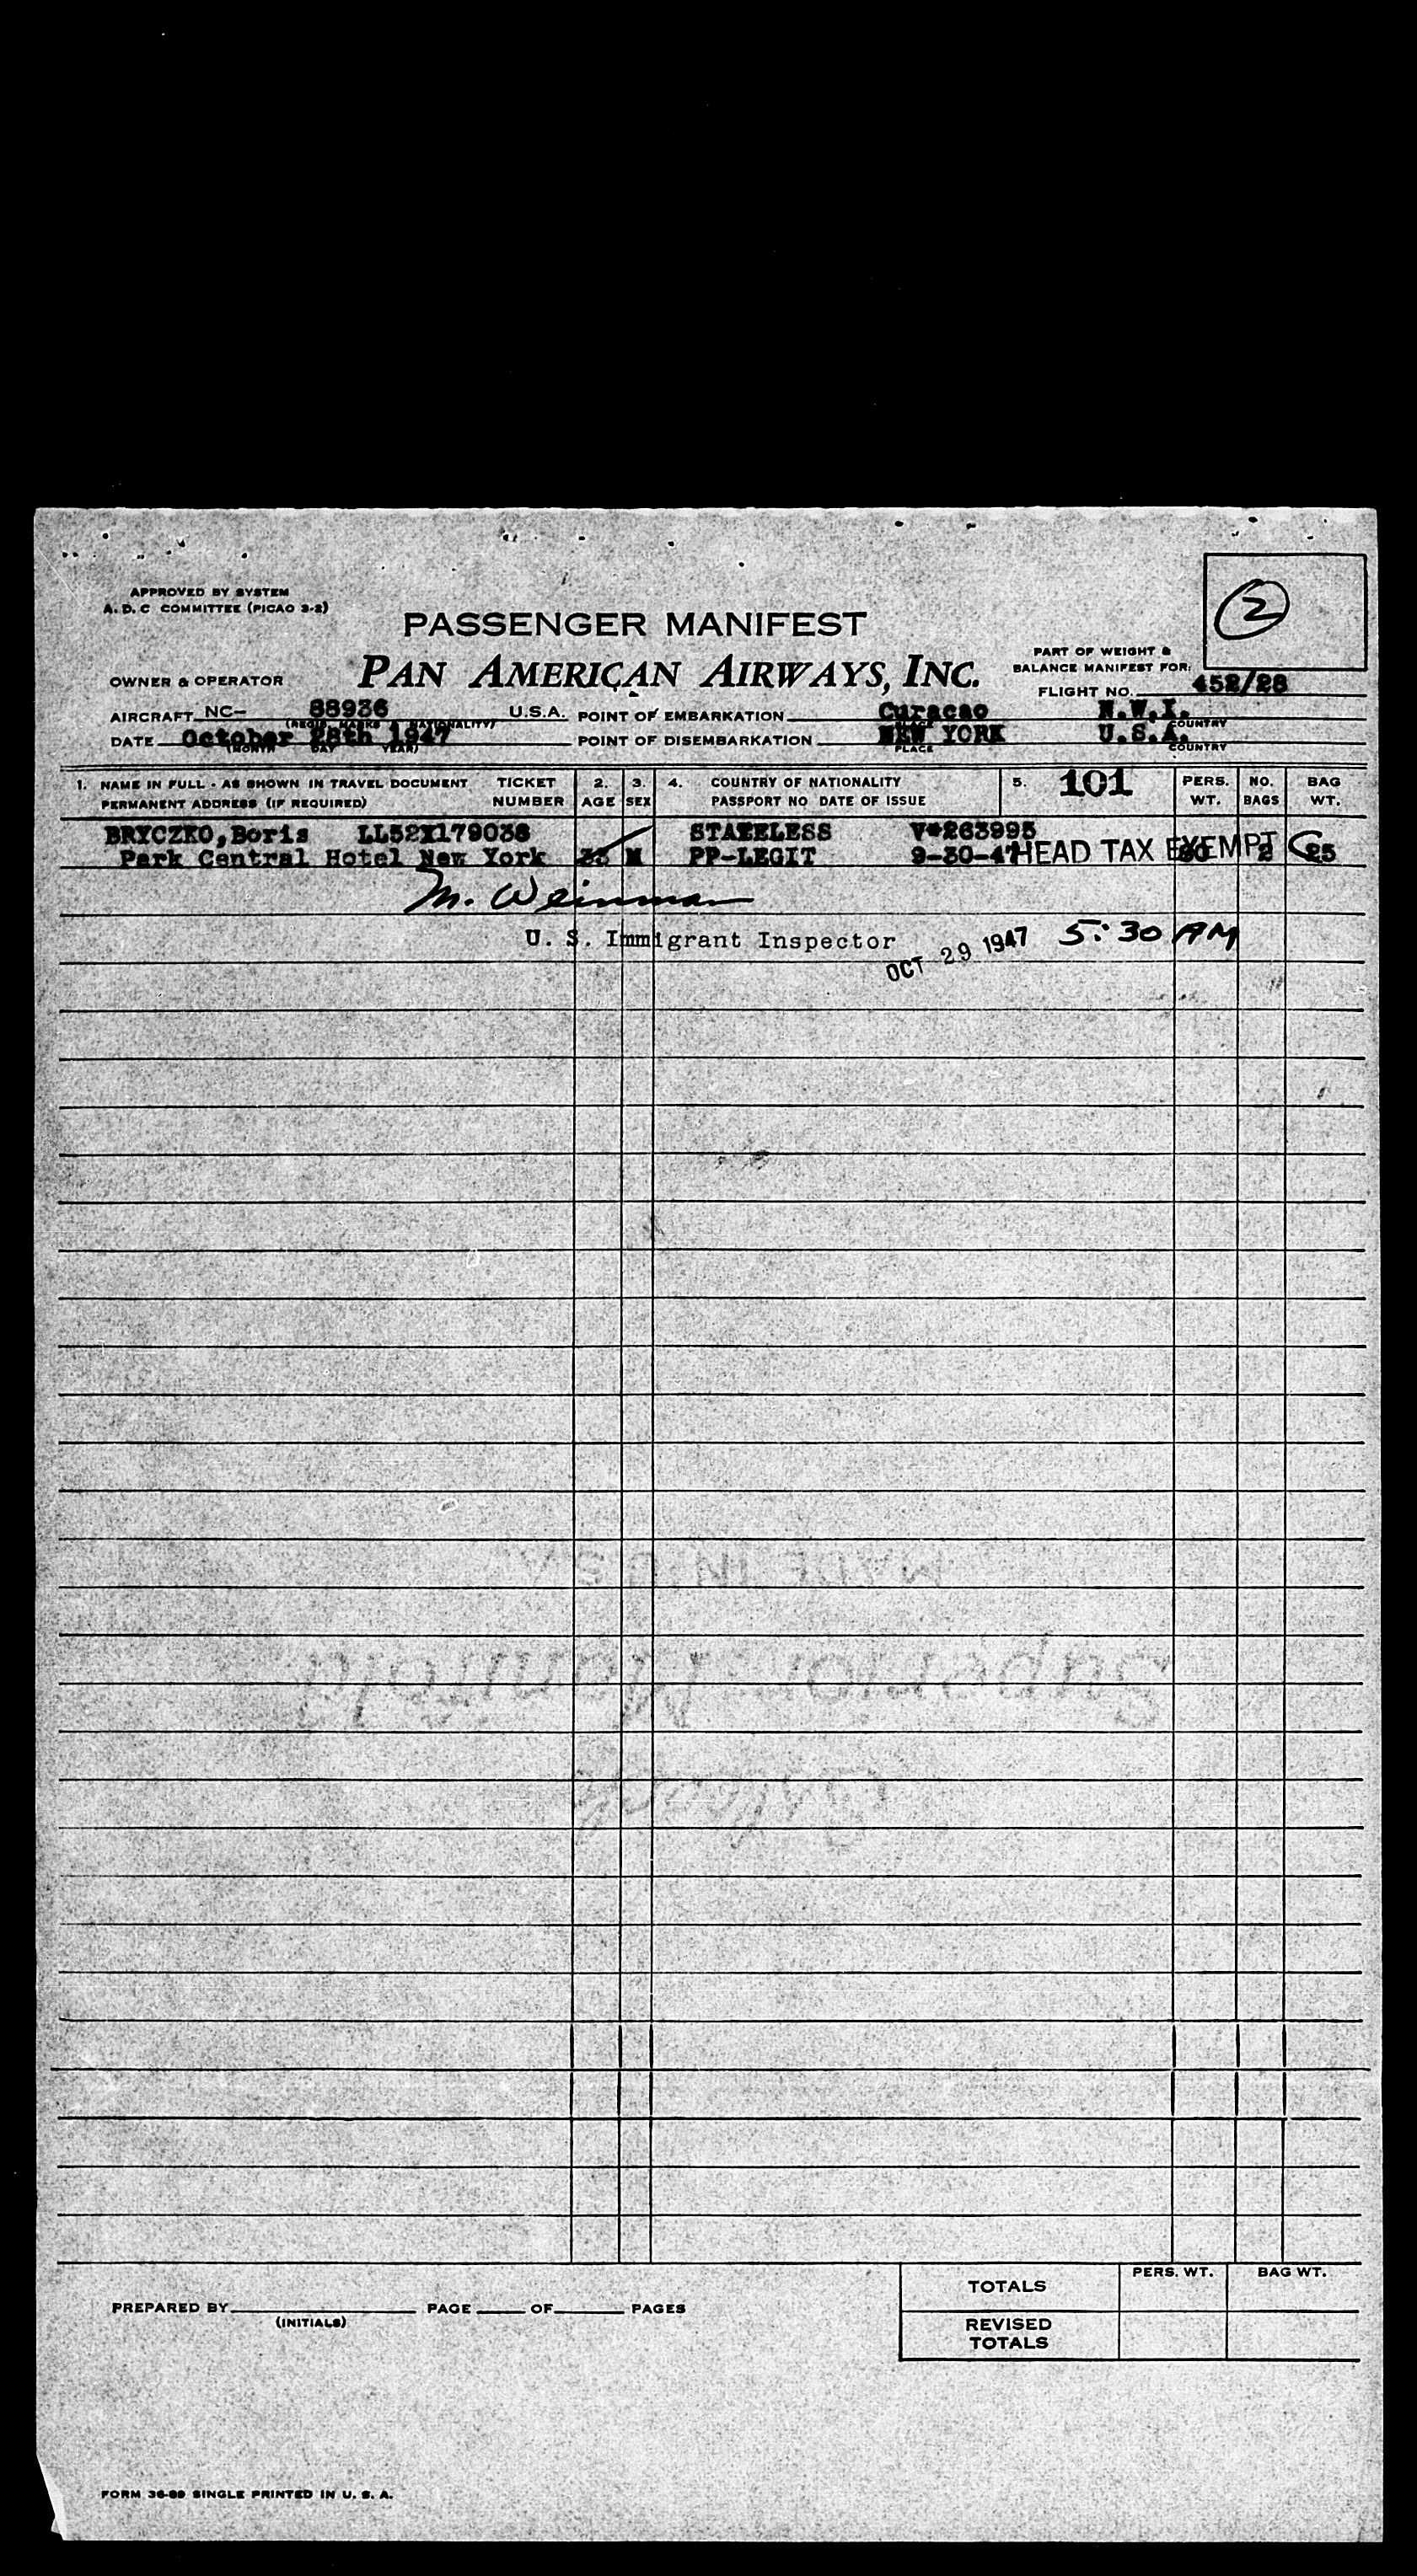 APPROVED BY SYSTEM
A. D. C COMMITTEE (PICAO 3-2)
2
PASSENGER MANIFEST
PART OF WEIGHT &
BALANCE MANIFEST FOR:
OWNER & OPERATOR PAN AMERICAN AIRWAYS, INC.
FLIGHT NO. 452/28
AIRCRAFT NC- 88936 U.S.A. POINT OF EMBARKATION Curacao N.W.I.
(REGIS. MARKS & NATIONALITY) COUNTRY
DATE October 28th 1947 POINT OF DISEMBARKATION NEW YORK U.S.A.
(MONTH DAY YEAR) PLACE COUNTRY
1. NAME IN FULL - AS SHOWN IN TRAVEL DOCUMENT TICKET 2. 3. 4. COUNTRY OF NATIONALITY 5. 101 PERS. NO. BAG
PERMANENT ADDRESS (IF REQUIRED) NUMBER AGE SEX PASSPORT NO DATE OF ISSUE WT. BAGS WT.
BRYCZKO, Boris LL52X179038 STATELESS V#263995
Park Central Hotel New York 33 M PP-LEGIT 9-30-47 HEAD TAX EXEMPT 2 25
M. Weinman
U. S. Immigrant Inspector OCT 29 1947 5:30 AM
MADE IN USA
Superior Manifold
PERS. WT. BAG WT.
TOTALS
PREPARED BY PAGE OF PAGES
(INITIALS)
REVISED
TOTALS
FORM 36-89 SINGLE PRINTED IN U. S. A.